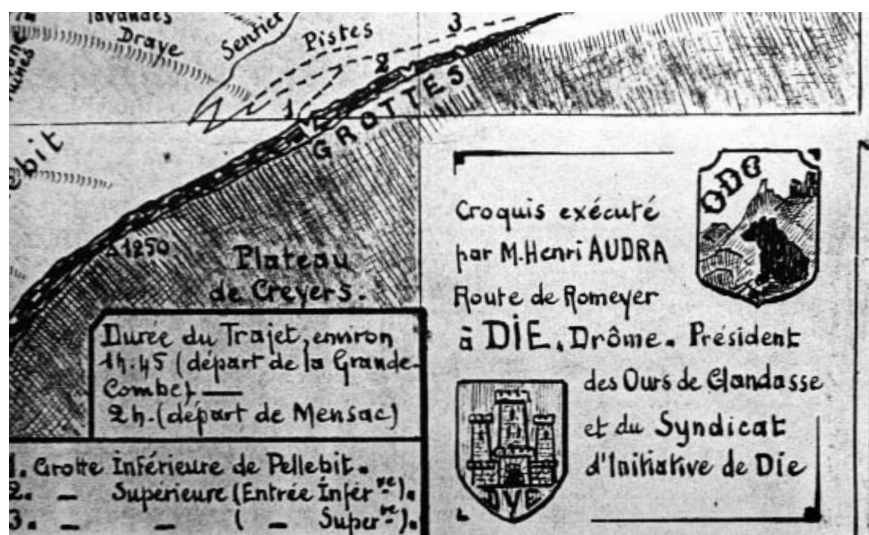 lavandes
Draye
Sentier
Pistes
3
2
1
GROTTES
1250
Plateau
de Creyers.
Durée du Trajet, environ
1h.45 (départ de la Grande-
Combe) —
2h. (départ de Mensac)
1. Grotte Inférieure de Pellebit.
2. — Supérieure (Entrée Infér.re).
3. — — ( — Super.re).
ODG
Croquis exécuté
par M. Henri AUDRA
Route de Romeyer
à DIE. Drôme. Président
des Ours de Glandasse
et du Syndicat
d'Initiative de Die
DYE